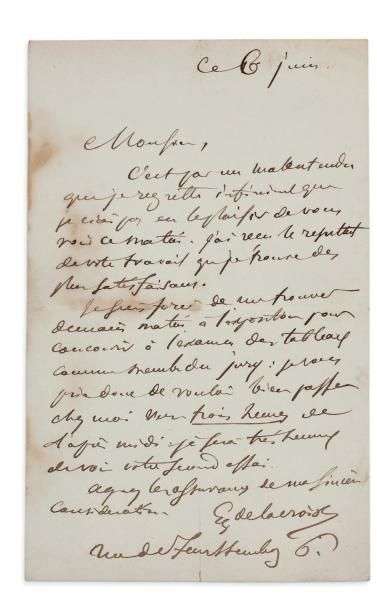 ce 6 juin.
Monsieur,
C'est par un malentendu
que je regrette infiniment que
je n'ai pas eu le plaisir de vous
voir ce matin. J'ai reçu le résultat
de votre travail que je trouve des
plus satisfaisans.
Je suis forcé de me trouver
demain matin à l'exposition pour
concourir à l'examen des tableaux
comme membre du jury : je vous
prie donc de vouloir bien passer
chez moi vers trois heures de
l'après midi : je serai très heureux
de voir votre second essai.
Agréez les assurances de ma sincère
considération.
Eug Delacroix
rue de Furstemberg 6.